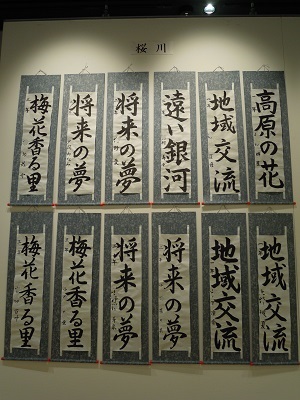 桜川
高原の花
地域交流
遠い銀河
将来の夢
将来の夢
梅花香る里
地域交流
地域交流
将来の夢
将来の夢
梅花香る里
梅花香る里